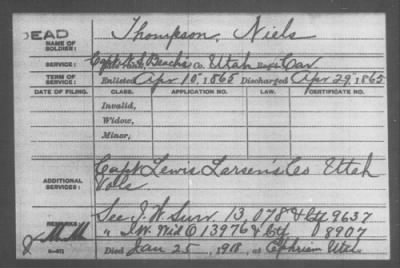 DEAD
NAME OF SOLDIER: Thompson, Niels
SERVICE: Capt. Beachs Co. Utah Cav
TERM OF SERVICE: Enlisted Apr 10, 1865 Discharged Apr 29, 1865
DATE OF FILING. CLASS. APPLICATION NO. LAW. CERTIFICATE NO.
Invalid,
Widow,
Minor,
ADDITIONAL SERVICES: Capt Lewis Larsen's Co Utah
Vols
REMARKS: See I.W. Surv. 13,078 & Ctf 9637
" I.W. Wid O 13976 & Ctf 8907
Died Jan 25, 1918, at Ephriem Utah